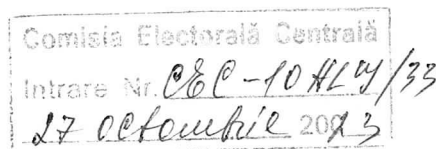 Comisia Electorală Centrală
Intrare Nr. CEC-10 /33
27 octombrie 2023